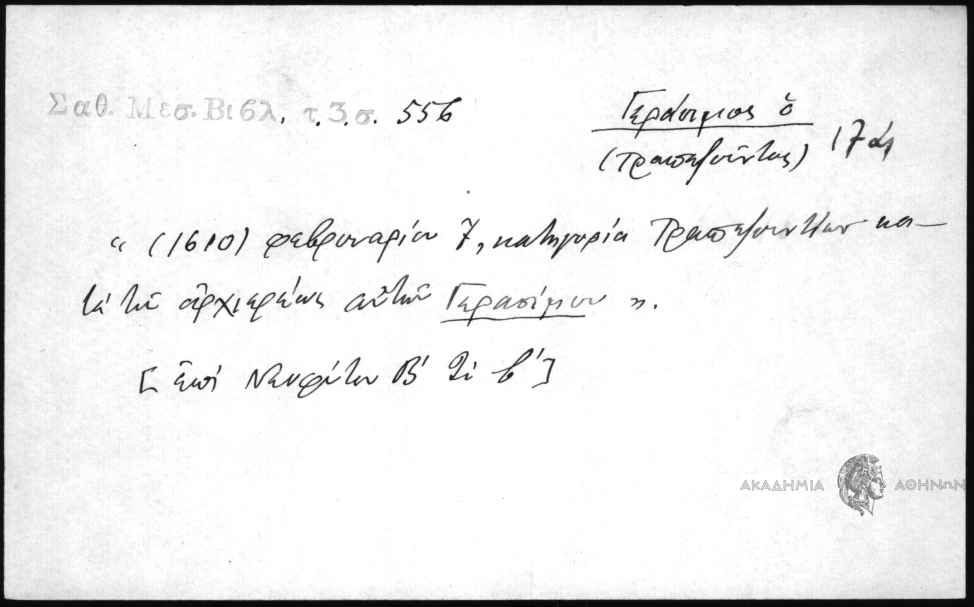 Σαθ. Μεσ. Βιβλ. τ. 3 σ. 556
Γεράσιμος ὁ
(Τραπεζοῦντος)
17α
« (1610) φεβρουαρίου 7, κατηγορία Τραπεζουντίων κα-
τὰ τοῦ ἀρχιερέως αὐτῶν Γερασίμου ».
[ ἐπὶ Νεοφύτου Β΄ τὸ β΄ ]
ΑΚΑΔΗΜΙΑ ΑΘΗΝΩΝ